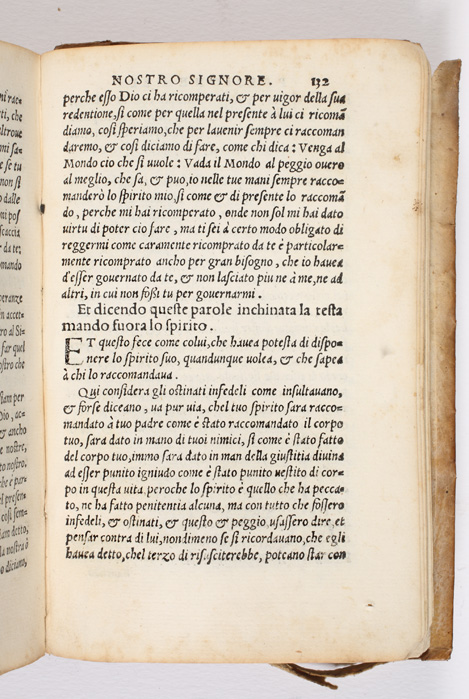 NOSTRO SIGNORE. 132
perche esso Dio ci ha ricomperati, & per uigor della sua
redentione, si come per quella nel presente à lui ci ricomã
diamo, così speriamo, che per lauenir sempre ci raccoman
daremo, & così diciamo di fare, come chi dica: Venga al
Mondo cio che si uuole: Vada il Mondo al peggio ouero
al meglio, che sa, & puo, io nelle tue mani sempre racco=
manderò lo spirito mio, si come & di presente lo raccomã
do, perche mi hai ricomperato, onde non sol mi hai dato
uirtu di poter cio fare, ma ti sei à certo modo obligato di
reggermi come caramente ricomprato da te è particolar=
mente ricomprato ancho per gran bisogno, che io hauea
d'esser gouernato da te, & non lasciato piu ne à me, ne ad
altri, in cui non fossi tu per gouernarmi.
Et dicendo queste parole inchinata la testa
mando fuora lo spirito.
ET questo fece come colui, che hauea potesta di dispo=
nere lo spirito suo, quandunque uolea, & che sapea
à chi lo raccomandaua.
Qui considera gli ostinati infedeli come insultauano,
& forse diceano, ua pur uia, chel tuo spirito sara racco=
mandato à tuo padre come è stato raccomandato il corpo
tuo, sara dato in mano di tuoi nimici, si come è stato fatto
del corpo tuo, immo sara dato in man della giustitia diuina
ad esser punito igniudo come è stato punito uestito di cor=
po in questa uita, peroche lo spirito è quello che ha pecca=
to, ne ha fatto penitentia alcuna, ma con tutto che fossero
infedeli, & ostinati, & questo & peggio usassero dire, et
pensar contra di lui, nondimeno se si ricordauano, che egli
hauea detto, chel terzo di risusciterebbe, poteano star con